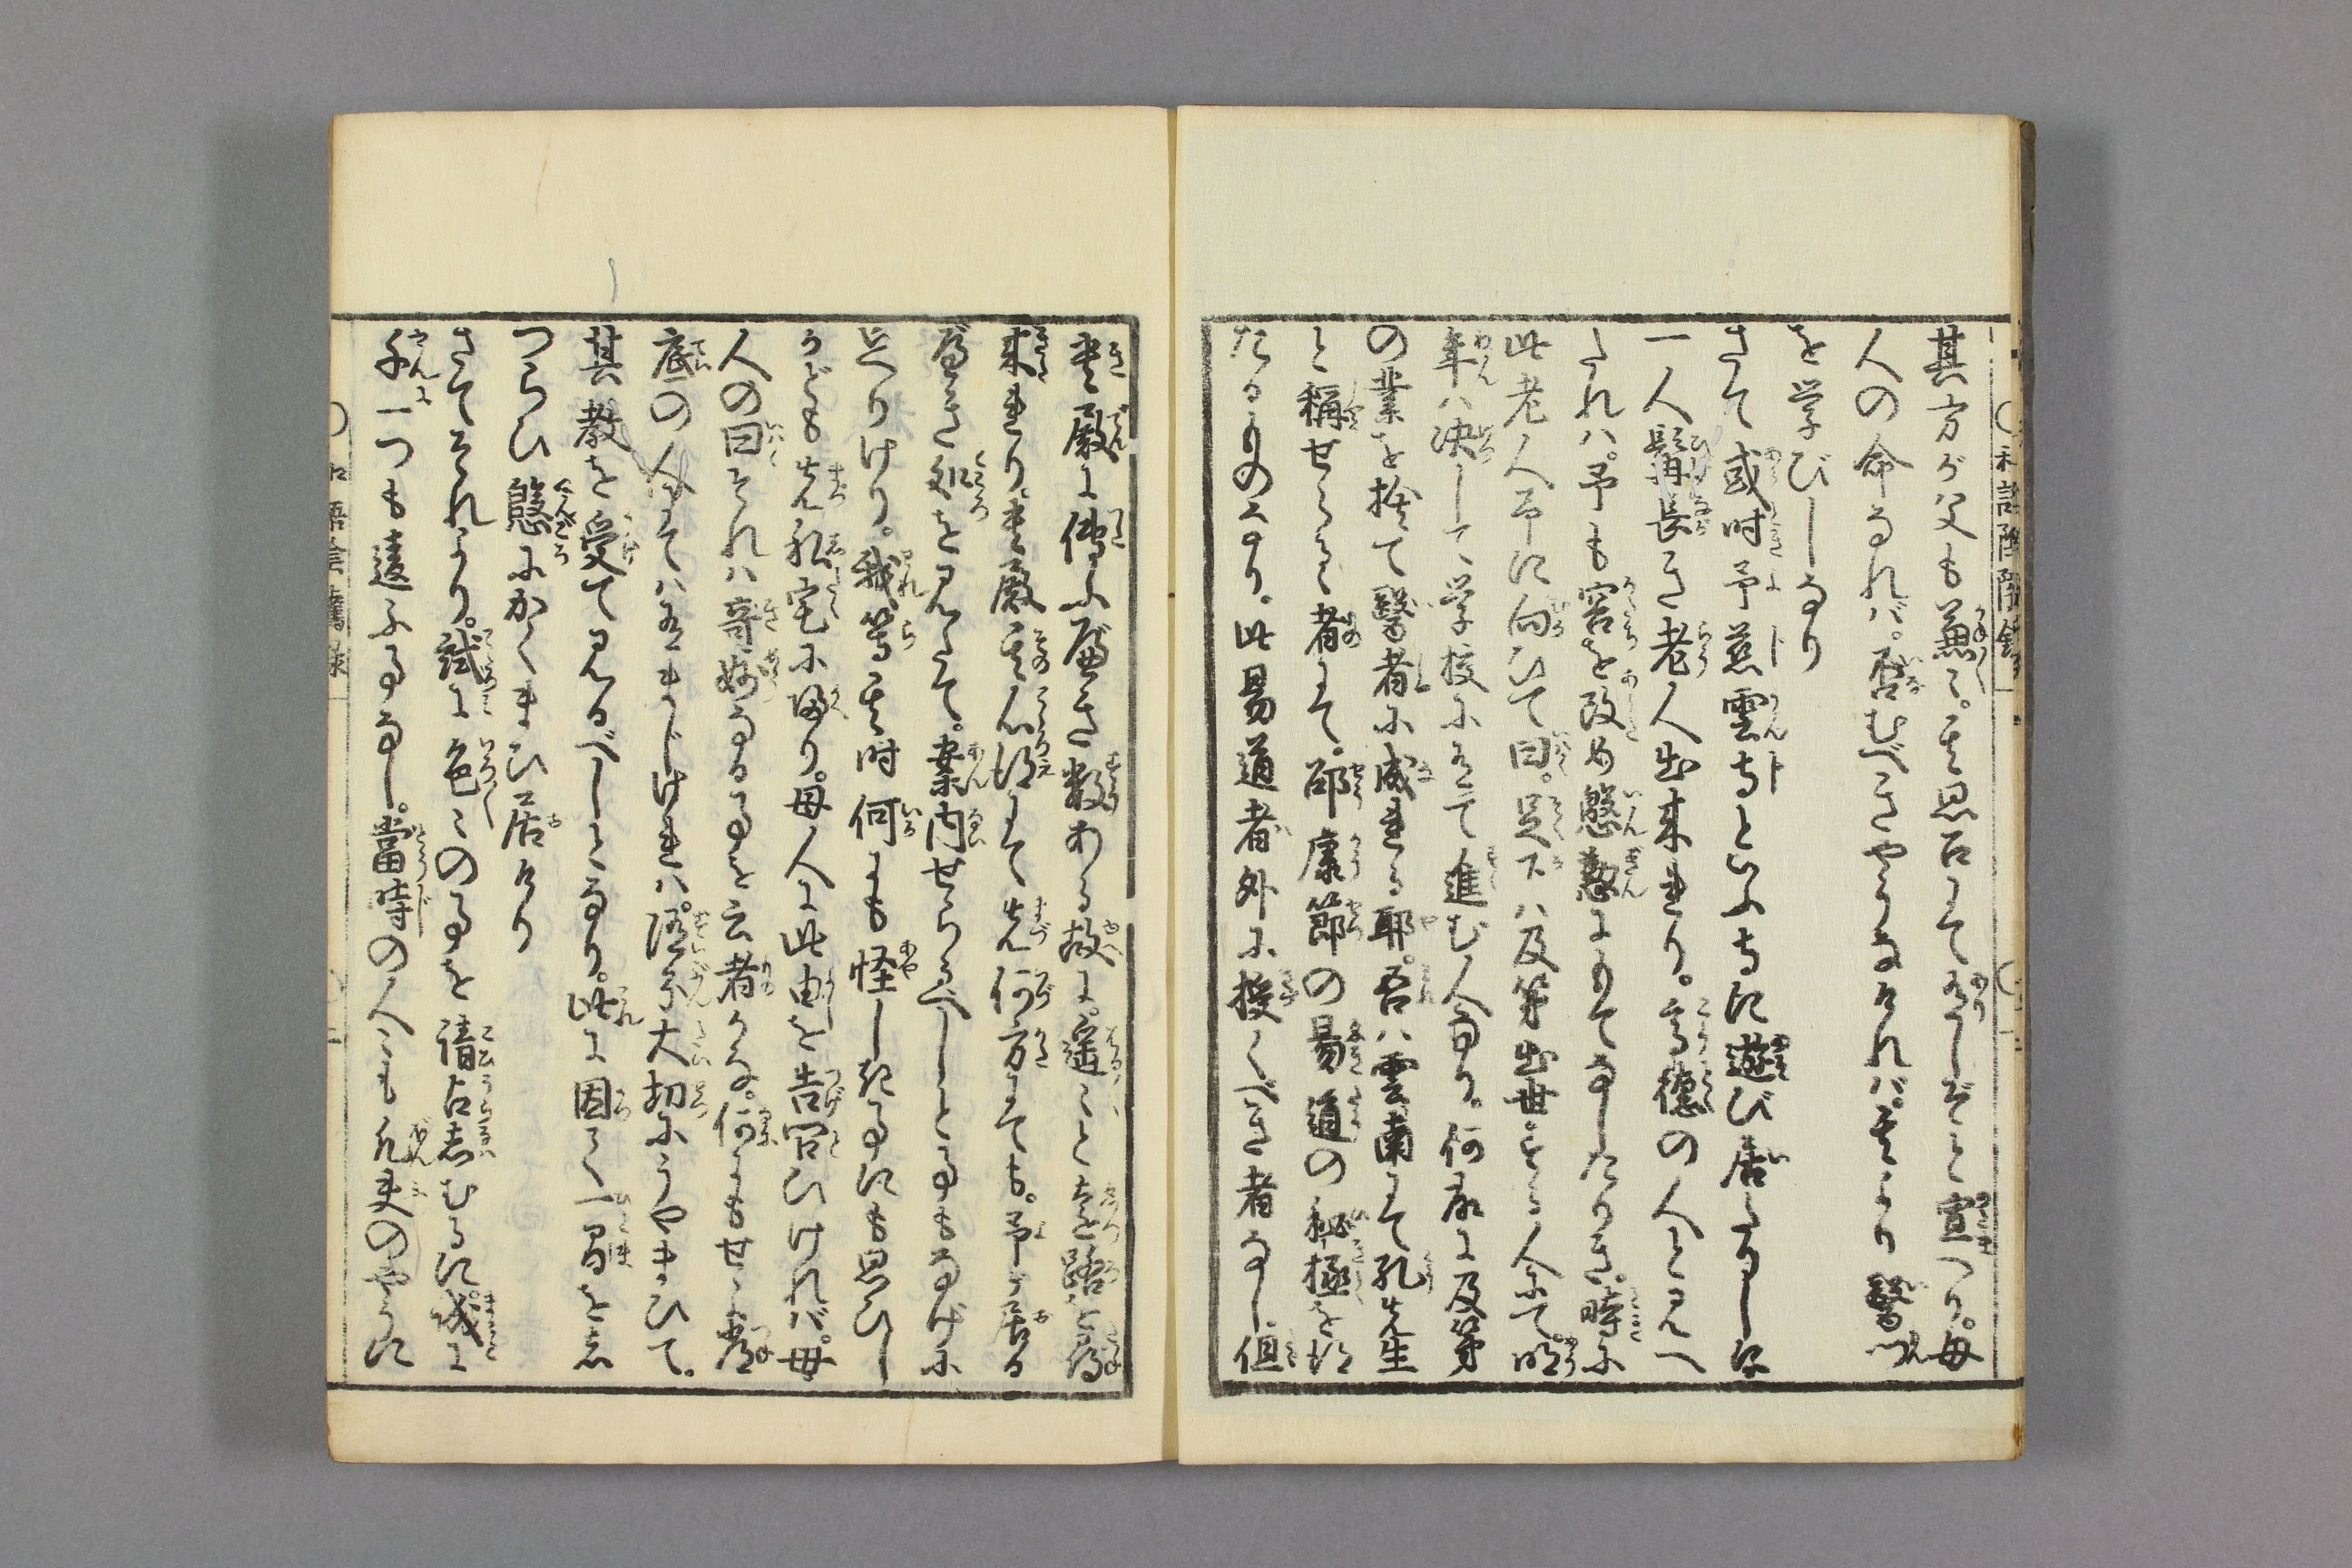 其方が父も兼々其思召にて有しぞと宣へり。母
人の命なれバ。否むべきやうなけれバ。其より醫
を学びしなり
さて或時予慈雲寺といふ寺に遊び居たりしに
一人髯長き老人出来れり。高徳の人と見へ
たれハ。予も容を改め慇懃にもてなしたりき。時に
此老人予に向ひて曰。足下ハ及第出世する人にて。明
年ハ决して学校に入て進む人なり。何故に及第
の業を捨て醫者に成れる耶。吾ハ雲南にて孔先生
と称せらるゝ者にて。邵康節の易道の秘極を得
たるものなり。此易道者外に授くべき者なし但
貴殿に傳ふ屬き数ある故に。遥々と遠路を尋
来れり。貴殿其心得にて先何方にても。予が居る
屬き処を見たて。案内せらるべしと事もなげに
云へりけり。我等其時何にも怪しき事にも思ひし
かども先私宅に帰り。母人に此由を告窓ひけれバ。母
人の曰それハ奇妙なる事を云者かな。何にもせよ尋
底の人にてハ有まじけれハ。随分大切にうやまひて。
其教を受て見るべしとなり。此に因て一間を志
つらひ慇にかくまひ居けり
さてそれより。試に色々の事を請占志むるに。誠に
千一つも違ふ事なし。當時の人々も